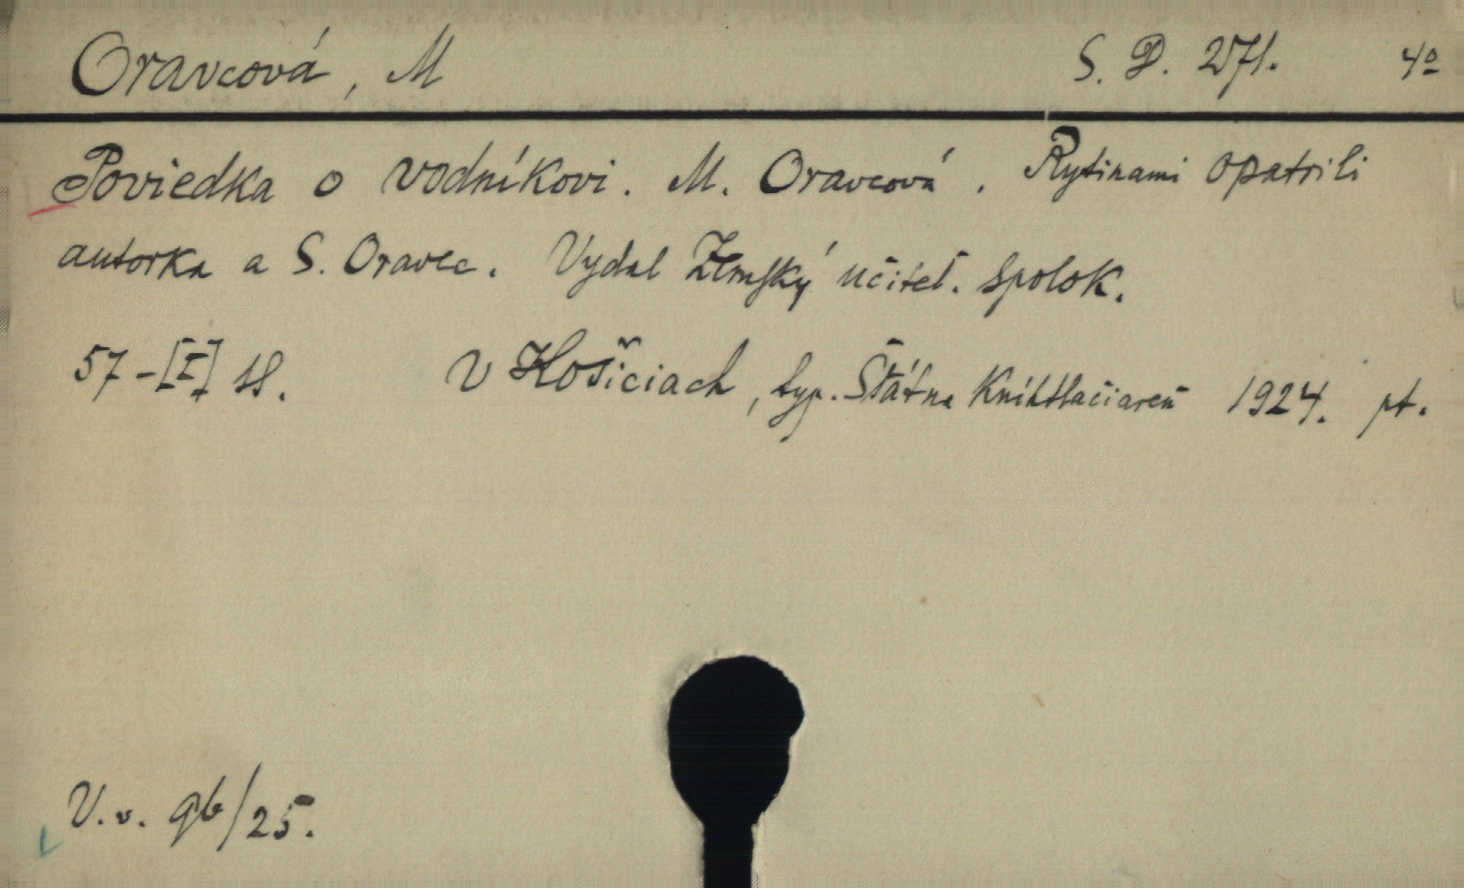 Oravcová, M S. D. 271. 4º
Poviedka o vodníkovi. M. Oravcová. Rytinami opatrili
autorka a S. Oravec. Vydal Zemský učiteľ. spolok.
57-[I] s. V Košiciach, typ. Štátna Kníhtlačiareň 1924. pt.
V. v. 96/25.